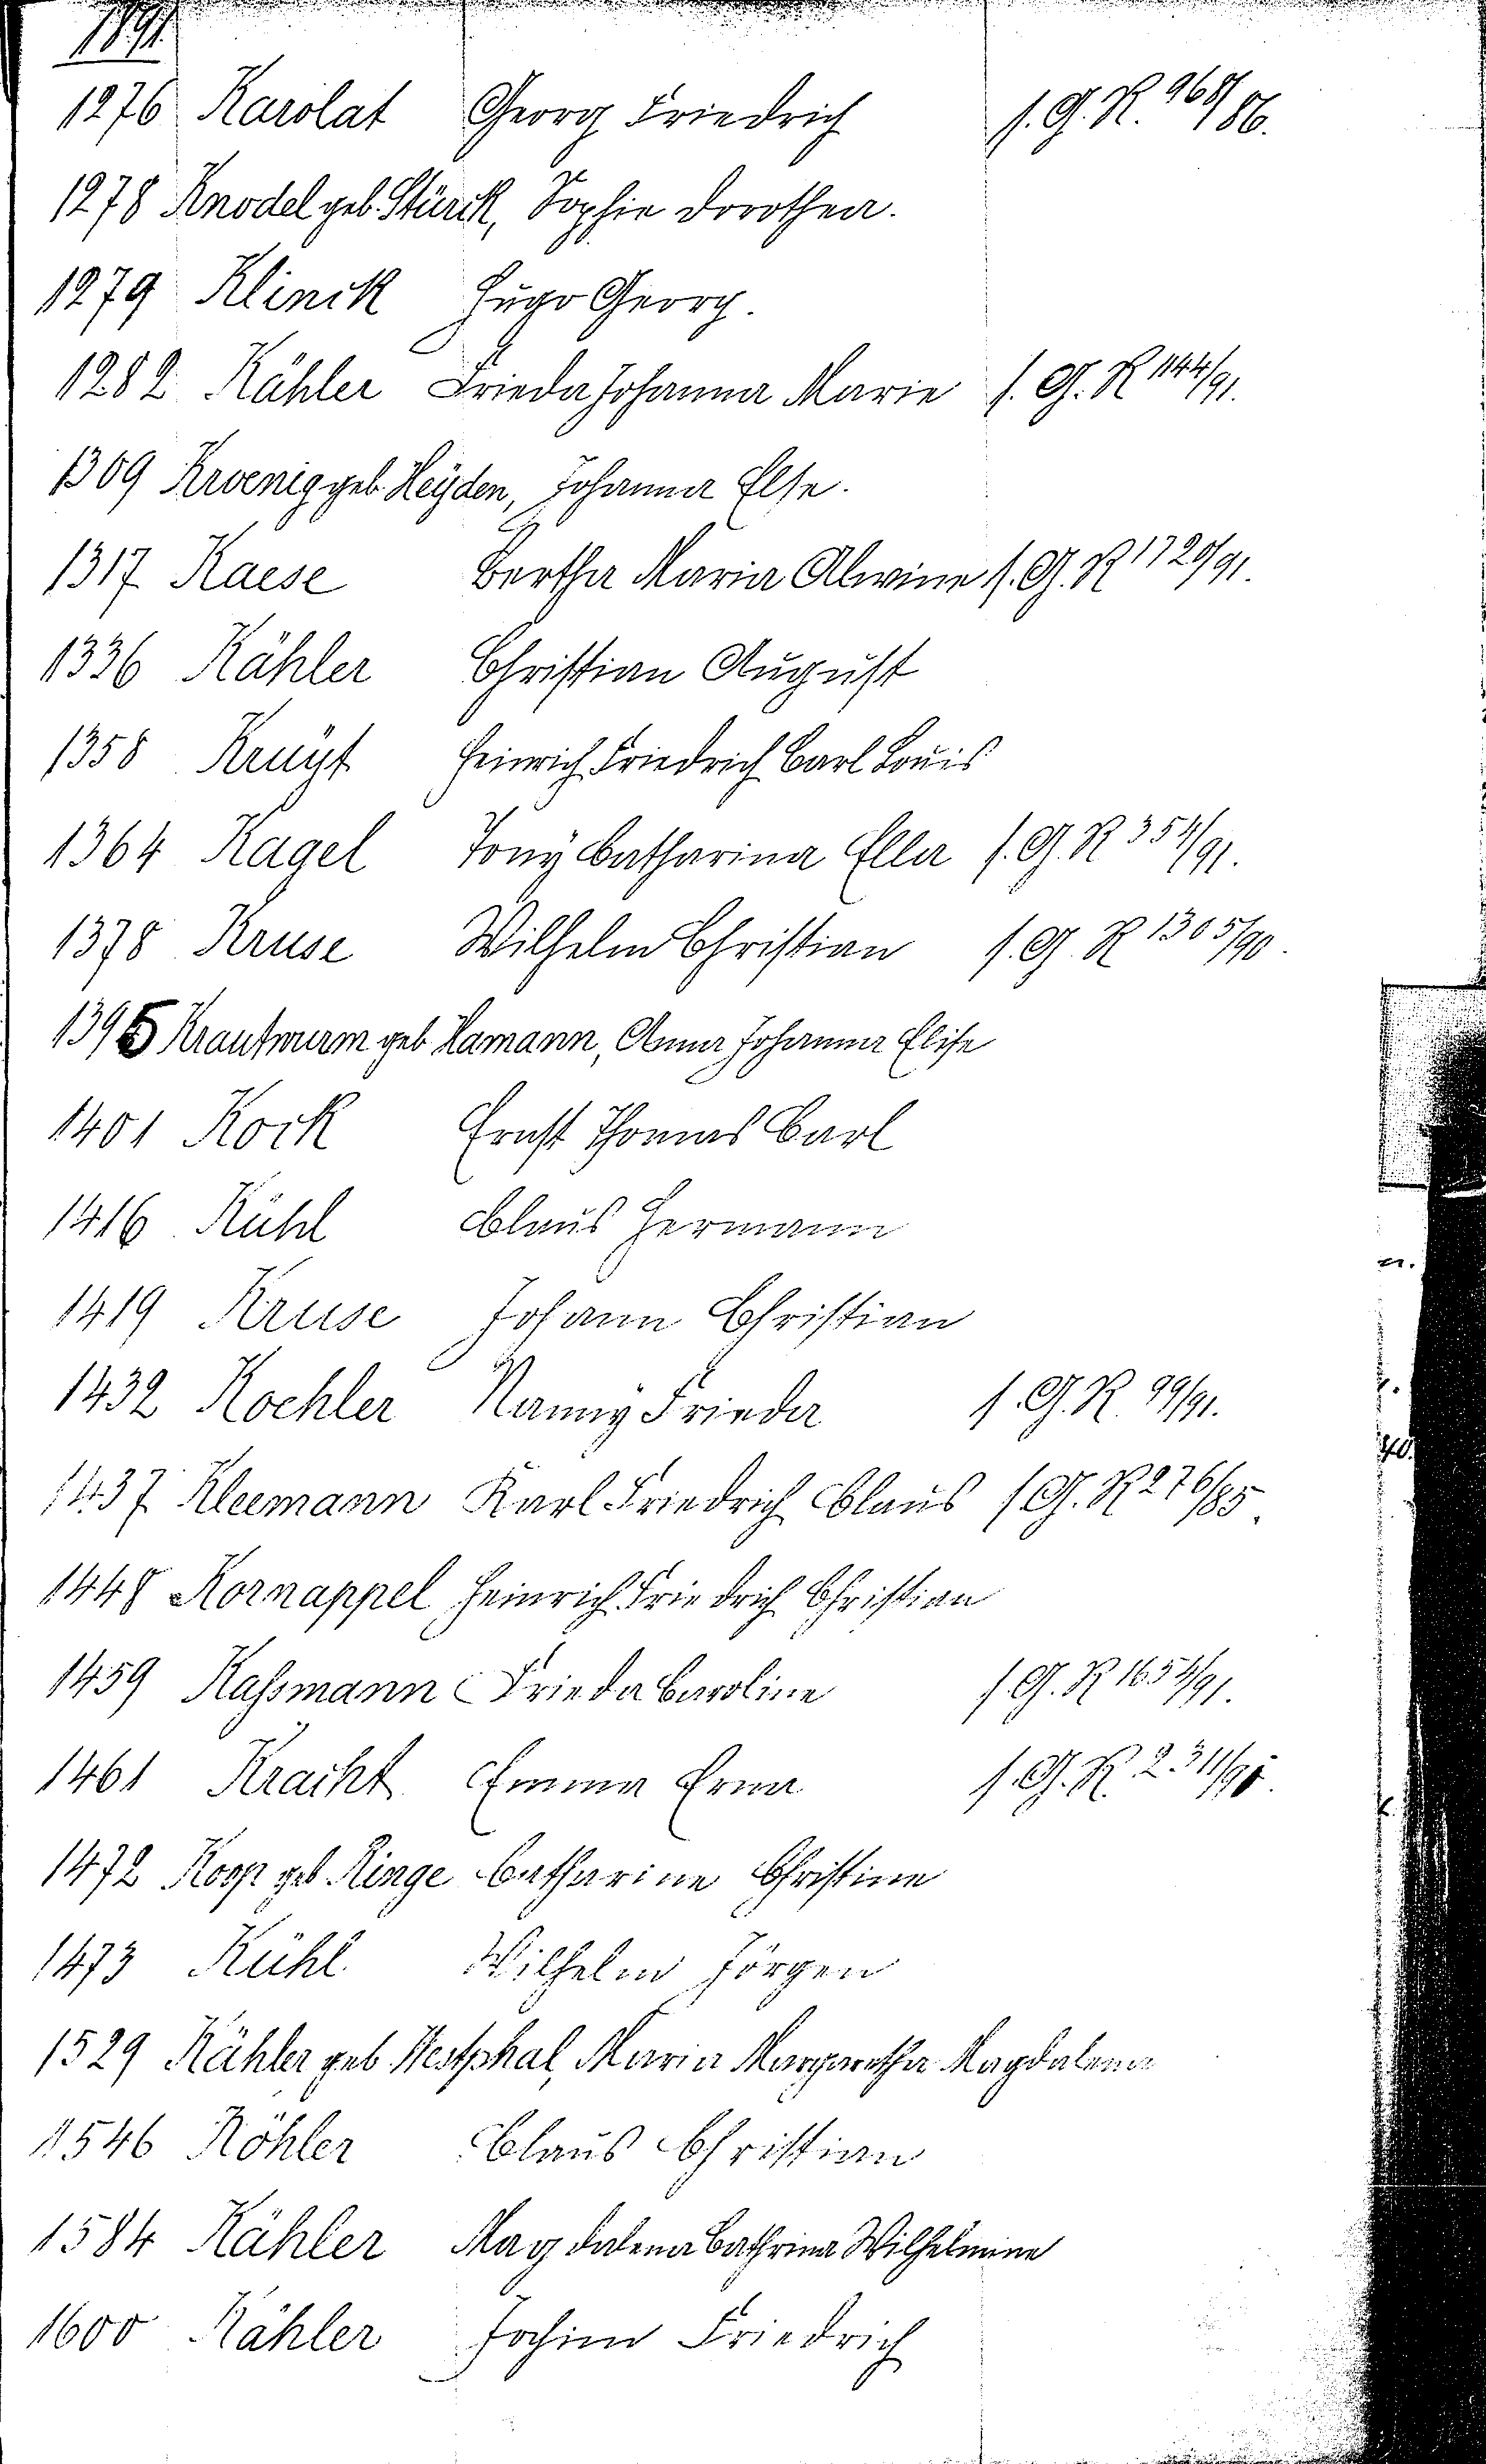 1891.
1276 Karolat Georg Friedrich s. G. R. 968/86.
1278 Knodel geb. Stürck, Sophie Dorothea.
1279 Klinck Hugo Georg.
1282 Kähler Frieda Johanna Marie s. G. R 1144/91.
1309 Kroenig geb. Heyden, Johanna Else.
1317 Kaese Bertha Maria Alwine s. G. R 1720/91.
1336 Kähler Christian August
1358 Kruyt Heinrich Friedrich Carl Louis
1364 Kagel Tony Catharina Ella s. G. R 354/91.
1378 Kruse Wilhelm Christian s. G. R 1305/90.
1395 Krautwurm geb Hamann, Anna Johanna Elise
1401 Kock Ernst Thomas Carl
1416 Kühl Claus Hermann
1419 Kruse Johann Christian
1432 Koehler Nanny Frieda s. G. R. 99/91.
1437 Kleemann Karl Friedrich Claus s. G. R 276/85.
1448 Kornappel Heinrich Friedrich Christian
1459 Kassmann Frieda Caroline s. G. R 1654/91.
1461 Kracht Emma Erna s. G. R. 2311/90.
1472 Koop geb Ringe Catharine Christine
1473 Kühl Wilhelm Jörgen
1529 Kähler geb. Westphal, Maria Margaretha Magdalena
1546 Köhler Claus Christian
1584 Kähler Magdalena Cathrina Wilhelmine
1600 Kähler Jochim Friedrich